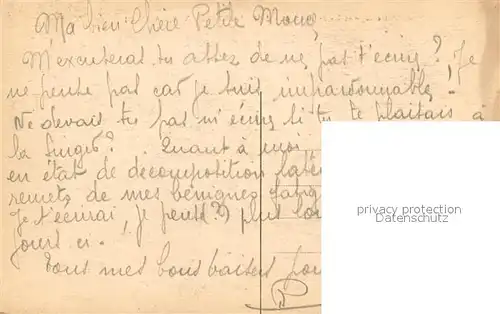 Ma bien chère Petite Mone,
M'excuseras tu assez de ne pas t'écrire? Je
ne pense pas car je suis impardonnable!
Ne devais tu pas m'écrire si tu te plaisais à
la Quant à moi
en état de décomposition
remets de mes bénignes
Je t'écrirai, je pense(?) plus
jours ci.
Tous mes bons baisers pour
P
privacy protection
Datenschutz